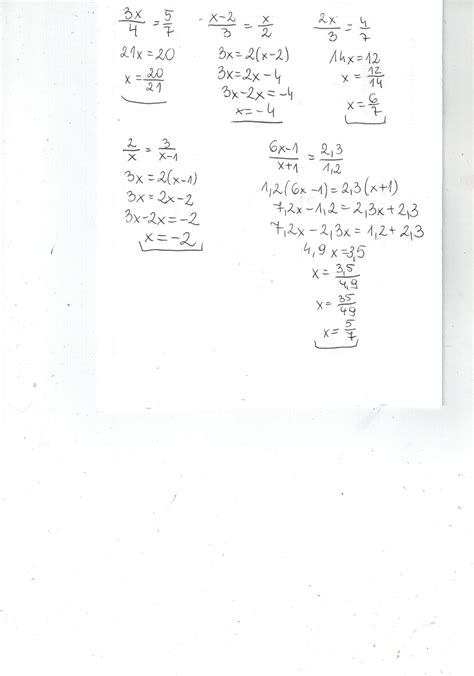 3x/4 = 5/7
21x = 20
x = 20/21
x-2/3 = x/2
3x = 2(x-2)
3x = 2x-4
3x-2x = -4
x = -4
2x/3 = 4/7
14x = 12
x = 12/14
x = 6/7
2/x = 3/x-1
3x = 2(x-1)
3x = 2x-2
3x-2x = -2
x = -2
6x-1/x+1 = 2,3/1,2
1,2(6x-1) = 2,3(x+1)
7,2x-1,2 = 2,3x+2,3
7,2x-2,3x = 1,2+2,3
4,9x = 3,5
x = 3,5/4,9
x = 35/49
x = 5/7